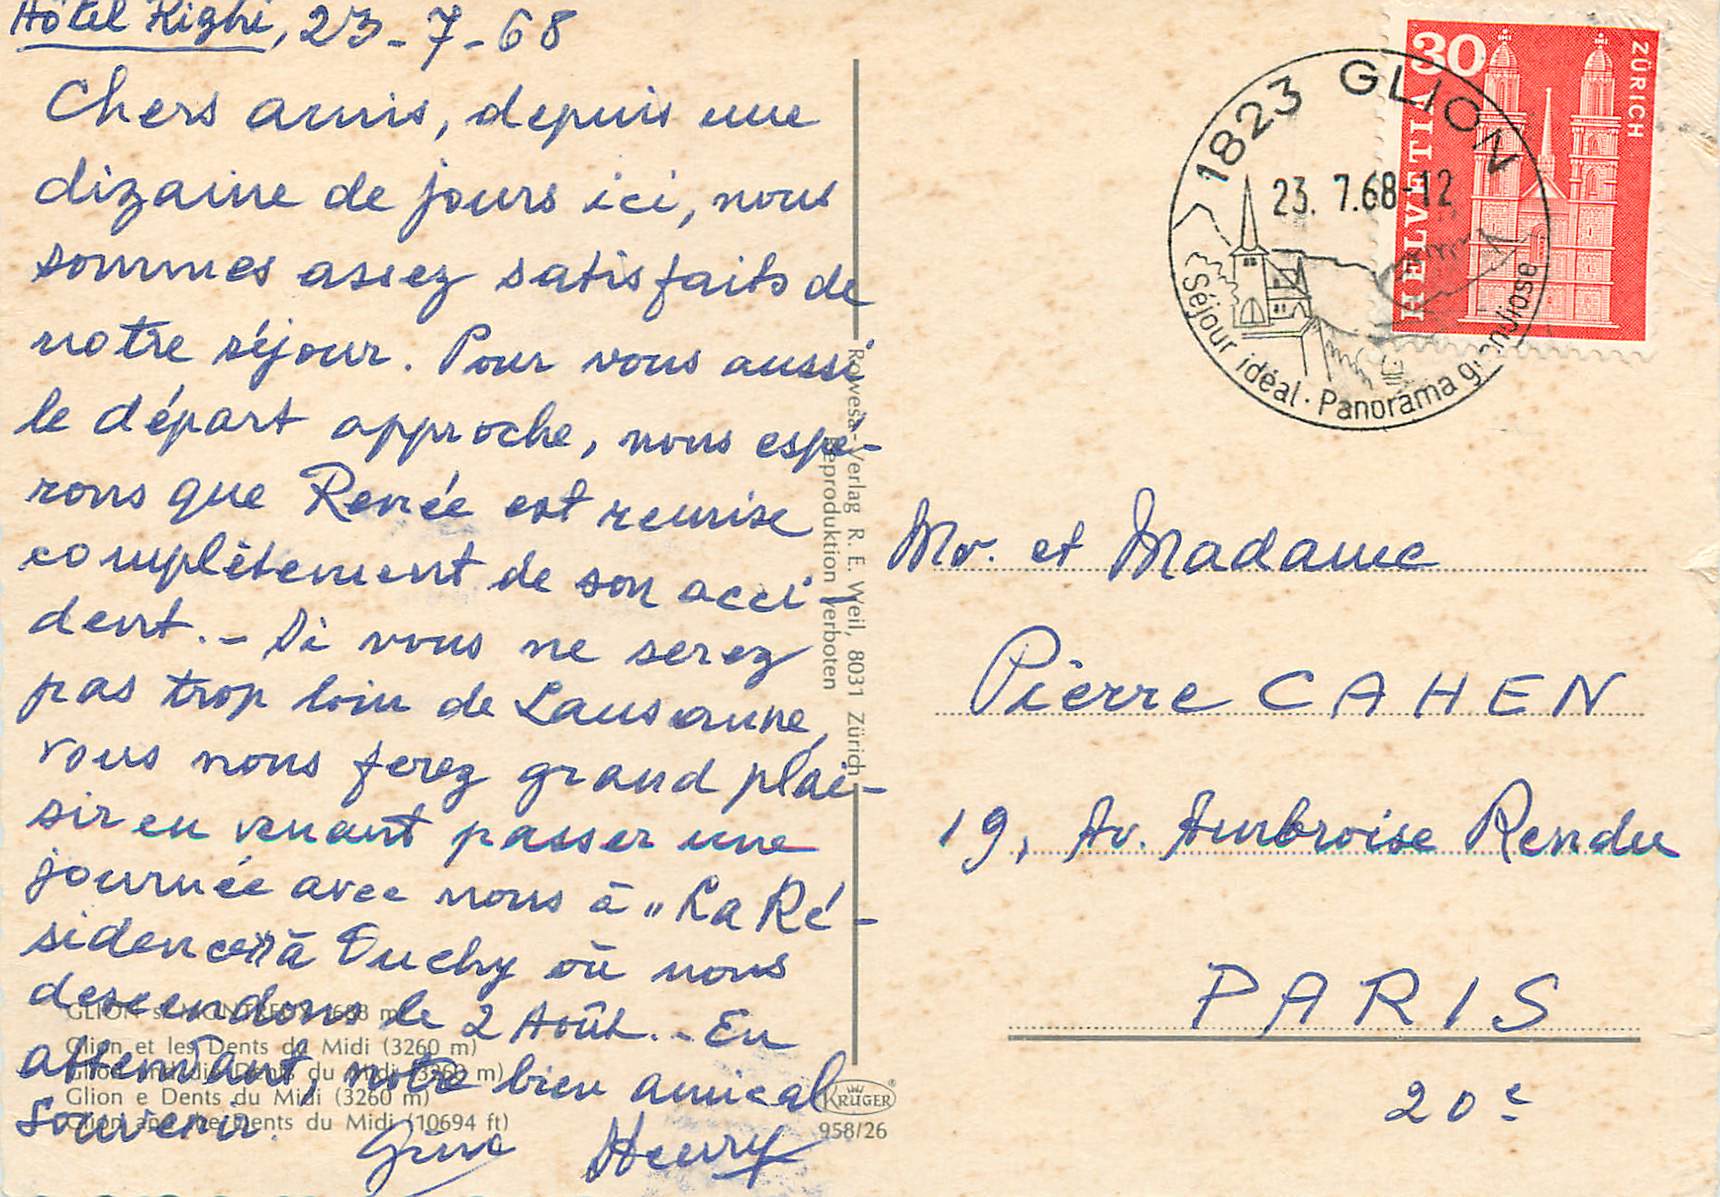 Hôtel Righi, 23-7-68
Chers amis, depuis une
dizaine de jours ici, nous
sommes assez satisfaits de
notre séjour. Pour vous aussi
le départ approche, nous espé-
rons que Renée est remise
complètement de son acci-
dent. - Si vous ne serez
pas trop loin de Lausanne,
vous nous ferez grand plai-
sir en venant passer une
journée avec nous à "La Ré-
sidence" à Ouchy où nous
descendons le 2 Août. - En
attendant, notre bien amical
souvenir.
Henry
GLION s. MONTREUX 688 m
Glion et les Dents du Midi (3260 m)
Glion und die Dents du Midi (3260 m)
Glion e Dents du Midi (3260 m)
Glion and the Dents du Midi (10694 ft)
Verlag R. E. Weil, 8031 Zürich
Reproduktion verboten
KRÜGER
958/26
1823 GLION
23. 7.68-12
Séjour idéal · Panorama grandiose
30
HELVETIA
ZÜRICH
Mr. et Madame
Pierre CAHEN
19, Av. Ambroise Rendu
PARIS
20e